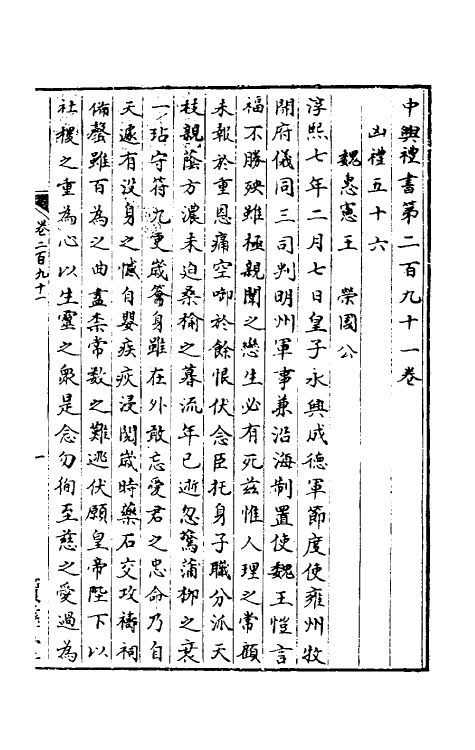 中興禮書第二百九十一卷
凶禮五十六
魏惠憲王　榮國公
淳熙七年二月七日皇子永興成德軍節度使雍州牧
開府儀同三司判明州軍事兼沿海制置使魏王愷言
福不勝殃雖極親闈之戀生必有死茲惟人理之常顧
未報於重恩痛空啣於餘恨伏念臣托身子職分派天
枝親蔭方濃未迫桑榆之暮流年已逝忽驚蒲柳之衰
一玷守符九更歲籥身雖在外敢忘愛君之忠命乃自
天遽有没身之憾自嬰疾疢浸閱歲時藥石交攻禱祠
備罄雖百為之曲盡柰常数之難逃伏願皇帝陛下以
社稷之重為心以生靈之衆是念勿徇至慈之愛過為
卷二百九十一
一